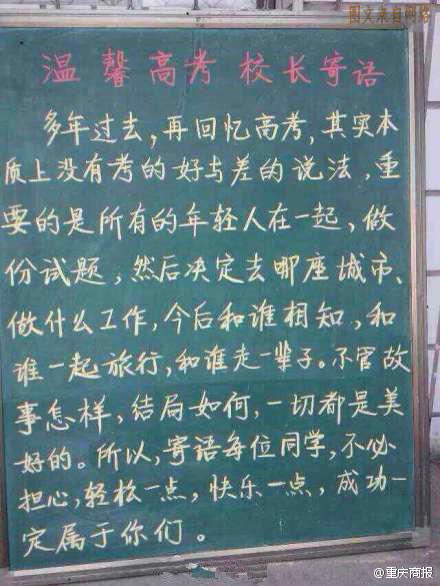 图文来自网络
温馨高考 校长寄语
多年过去,再回忆高考,其实本
质上没有考的好与差的说法,重
要的是所有的年轻人在一起,做
份试题,然后决定去哪座城市、
做什么工作,今后和谁相知,和
谁一起旅行,和谁走一辈子。不管故
事怎样,结局如何,一切都是美
好的。所以,寄语每位同学,不必
担心,轻松一点,快乐一点,成功一
定属于你们。
@重庆商报